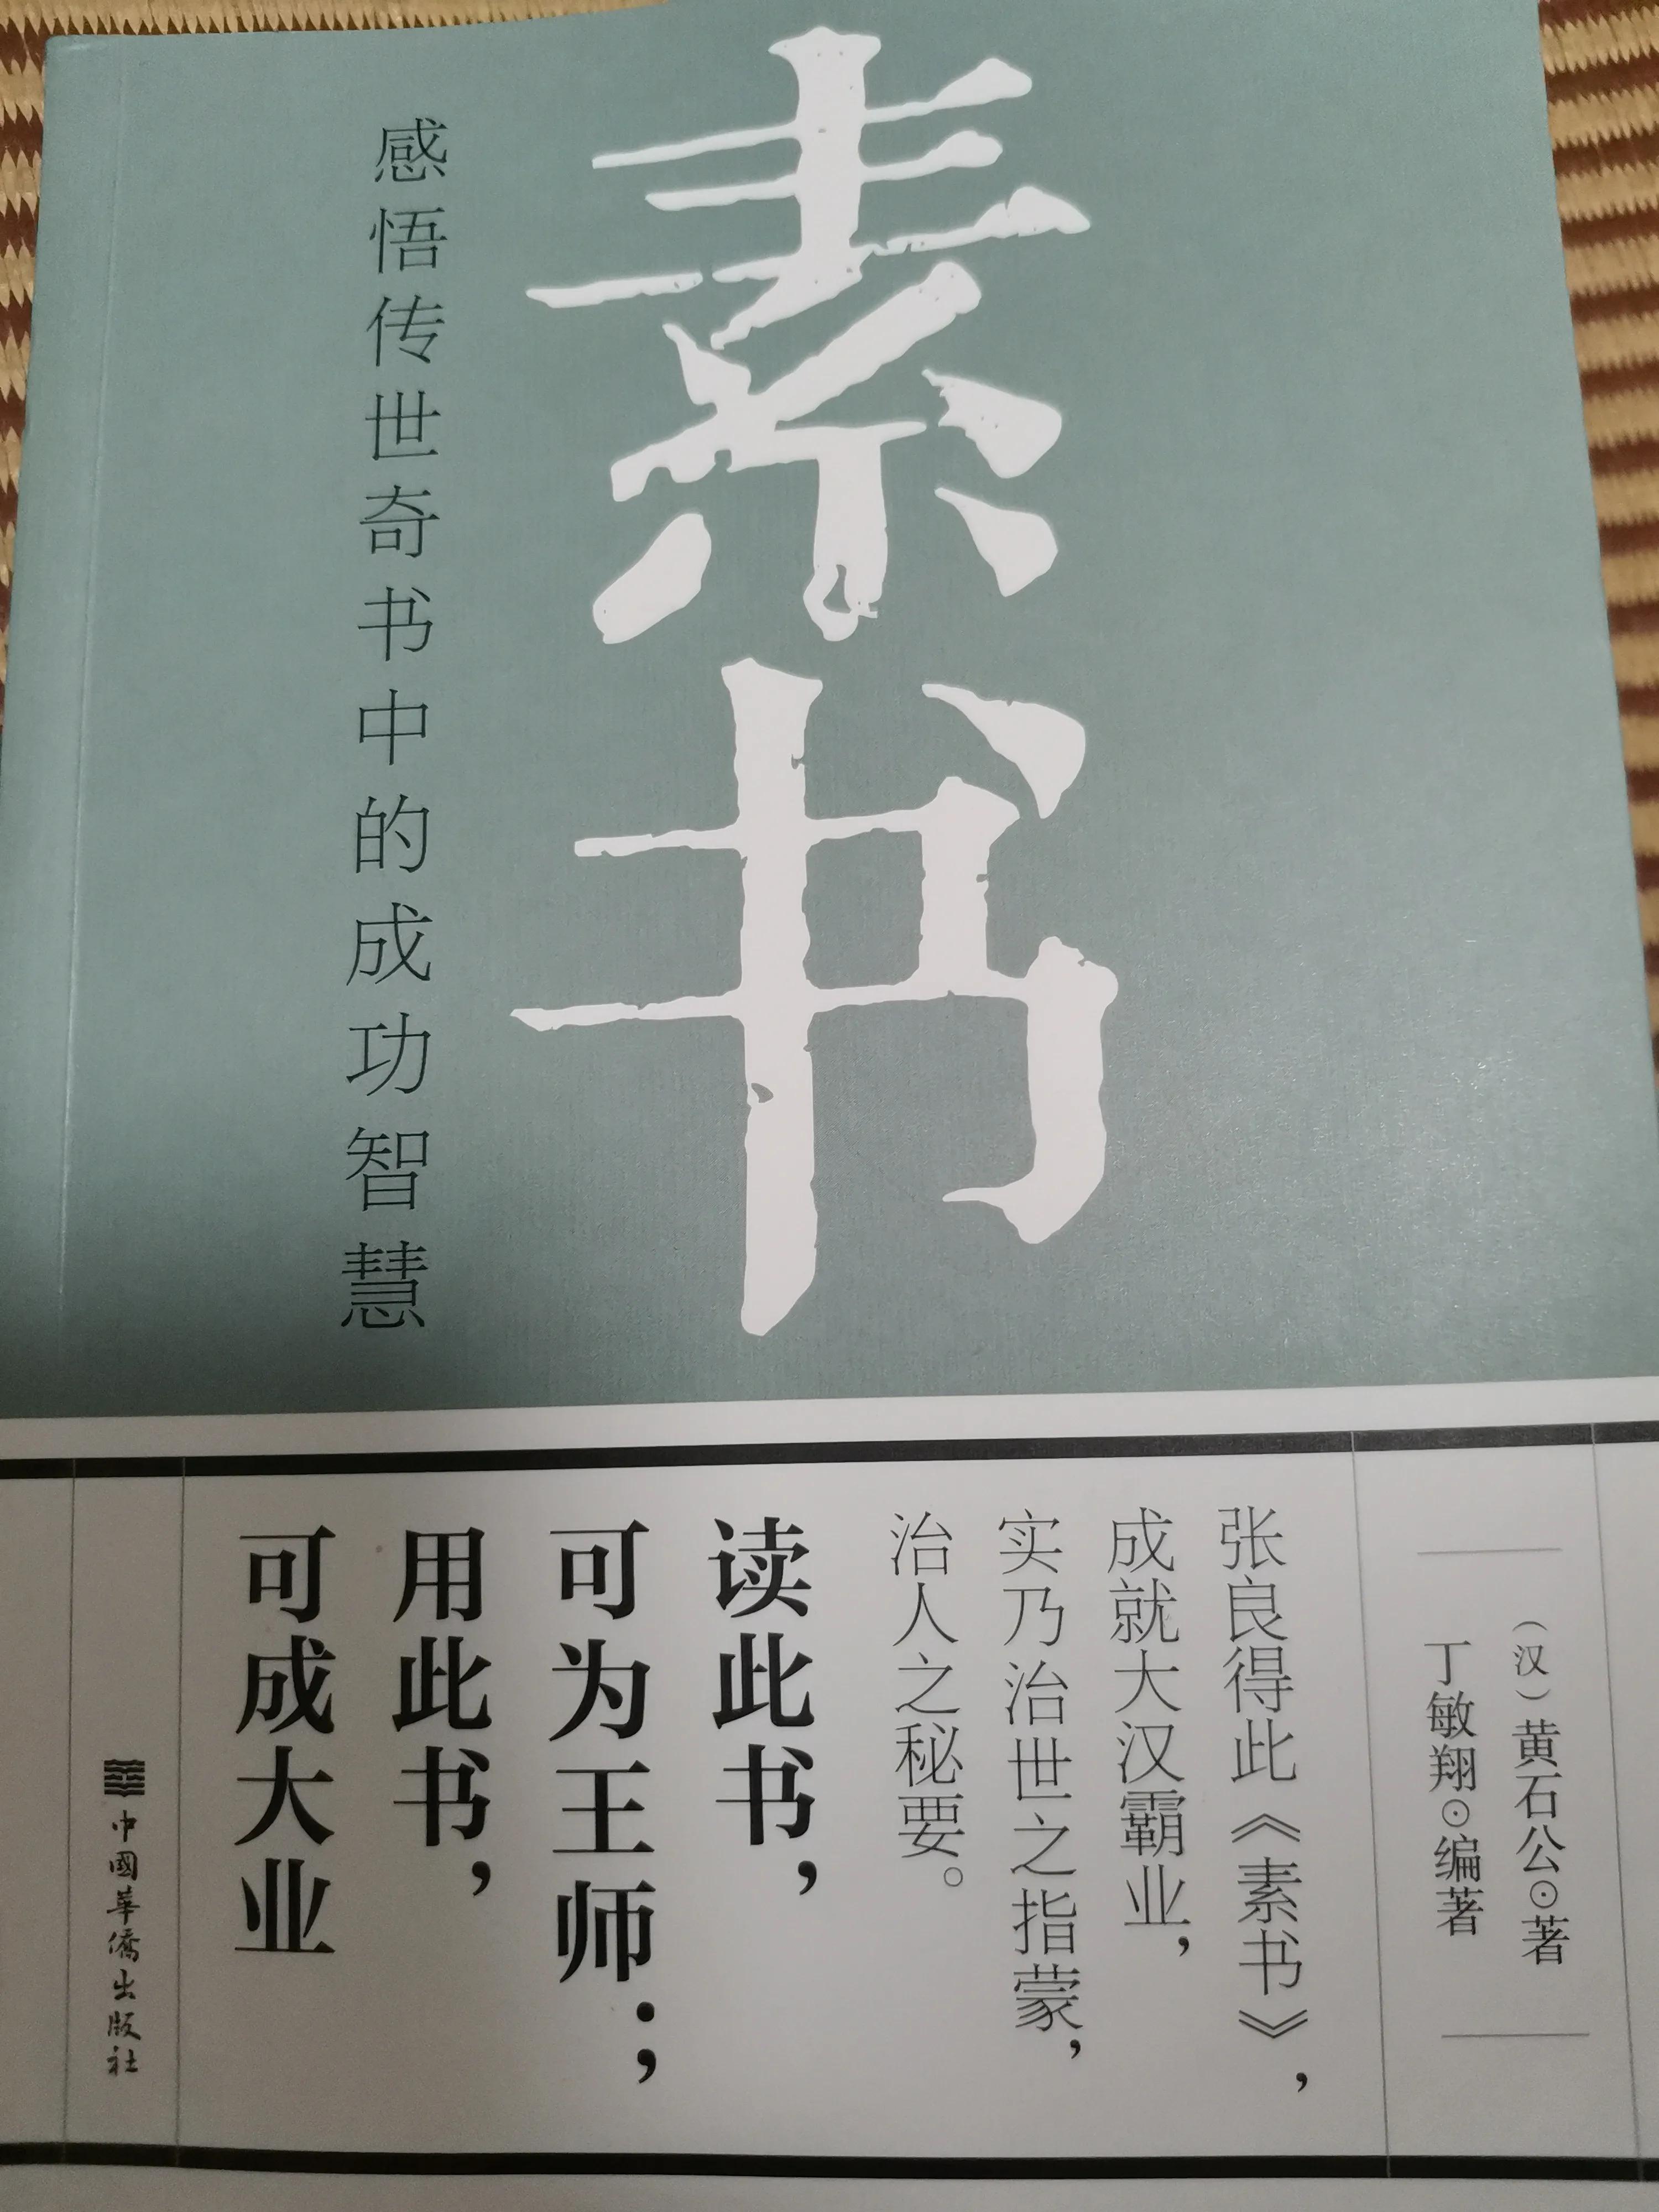 素书
感悟传世奇书中的成功智慧
（汉）黄石公⊙著
丁敏翔⊙编著
张良得此《素书》，
成就大汉霸业，
实乃治世之指蒙，
治人之秘要。
读此书，
可为王师；
用此书，
可成大业
中國華僑出版社